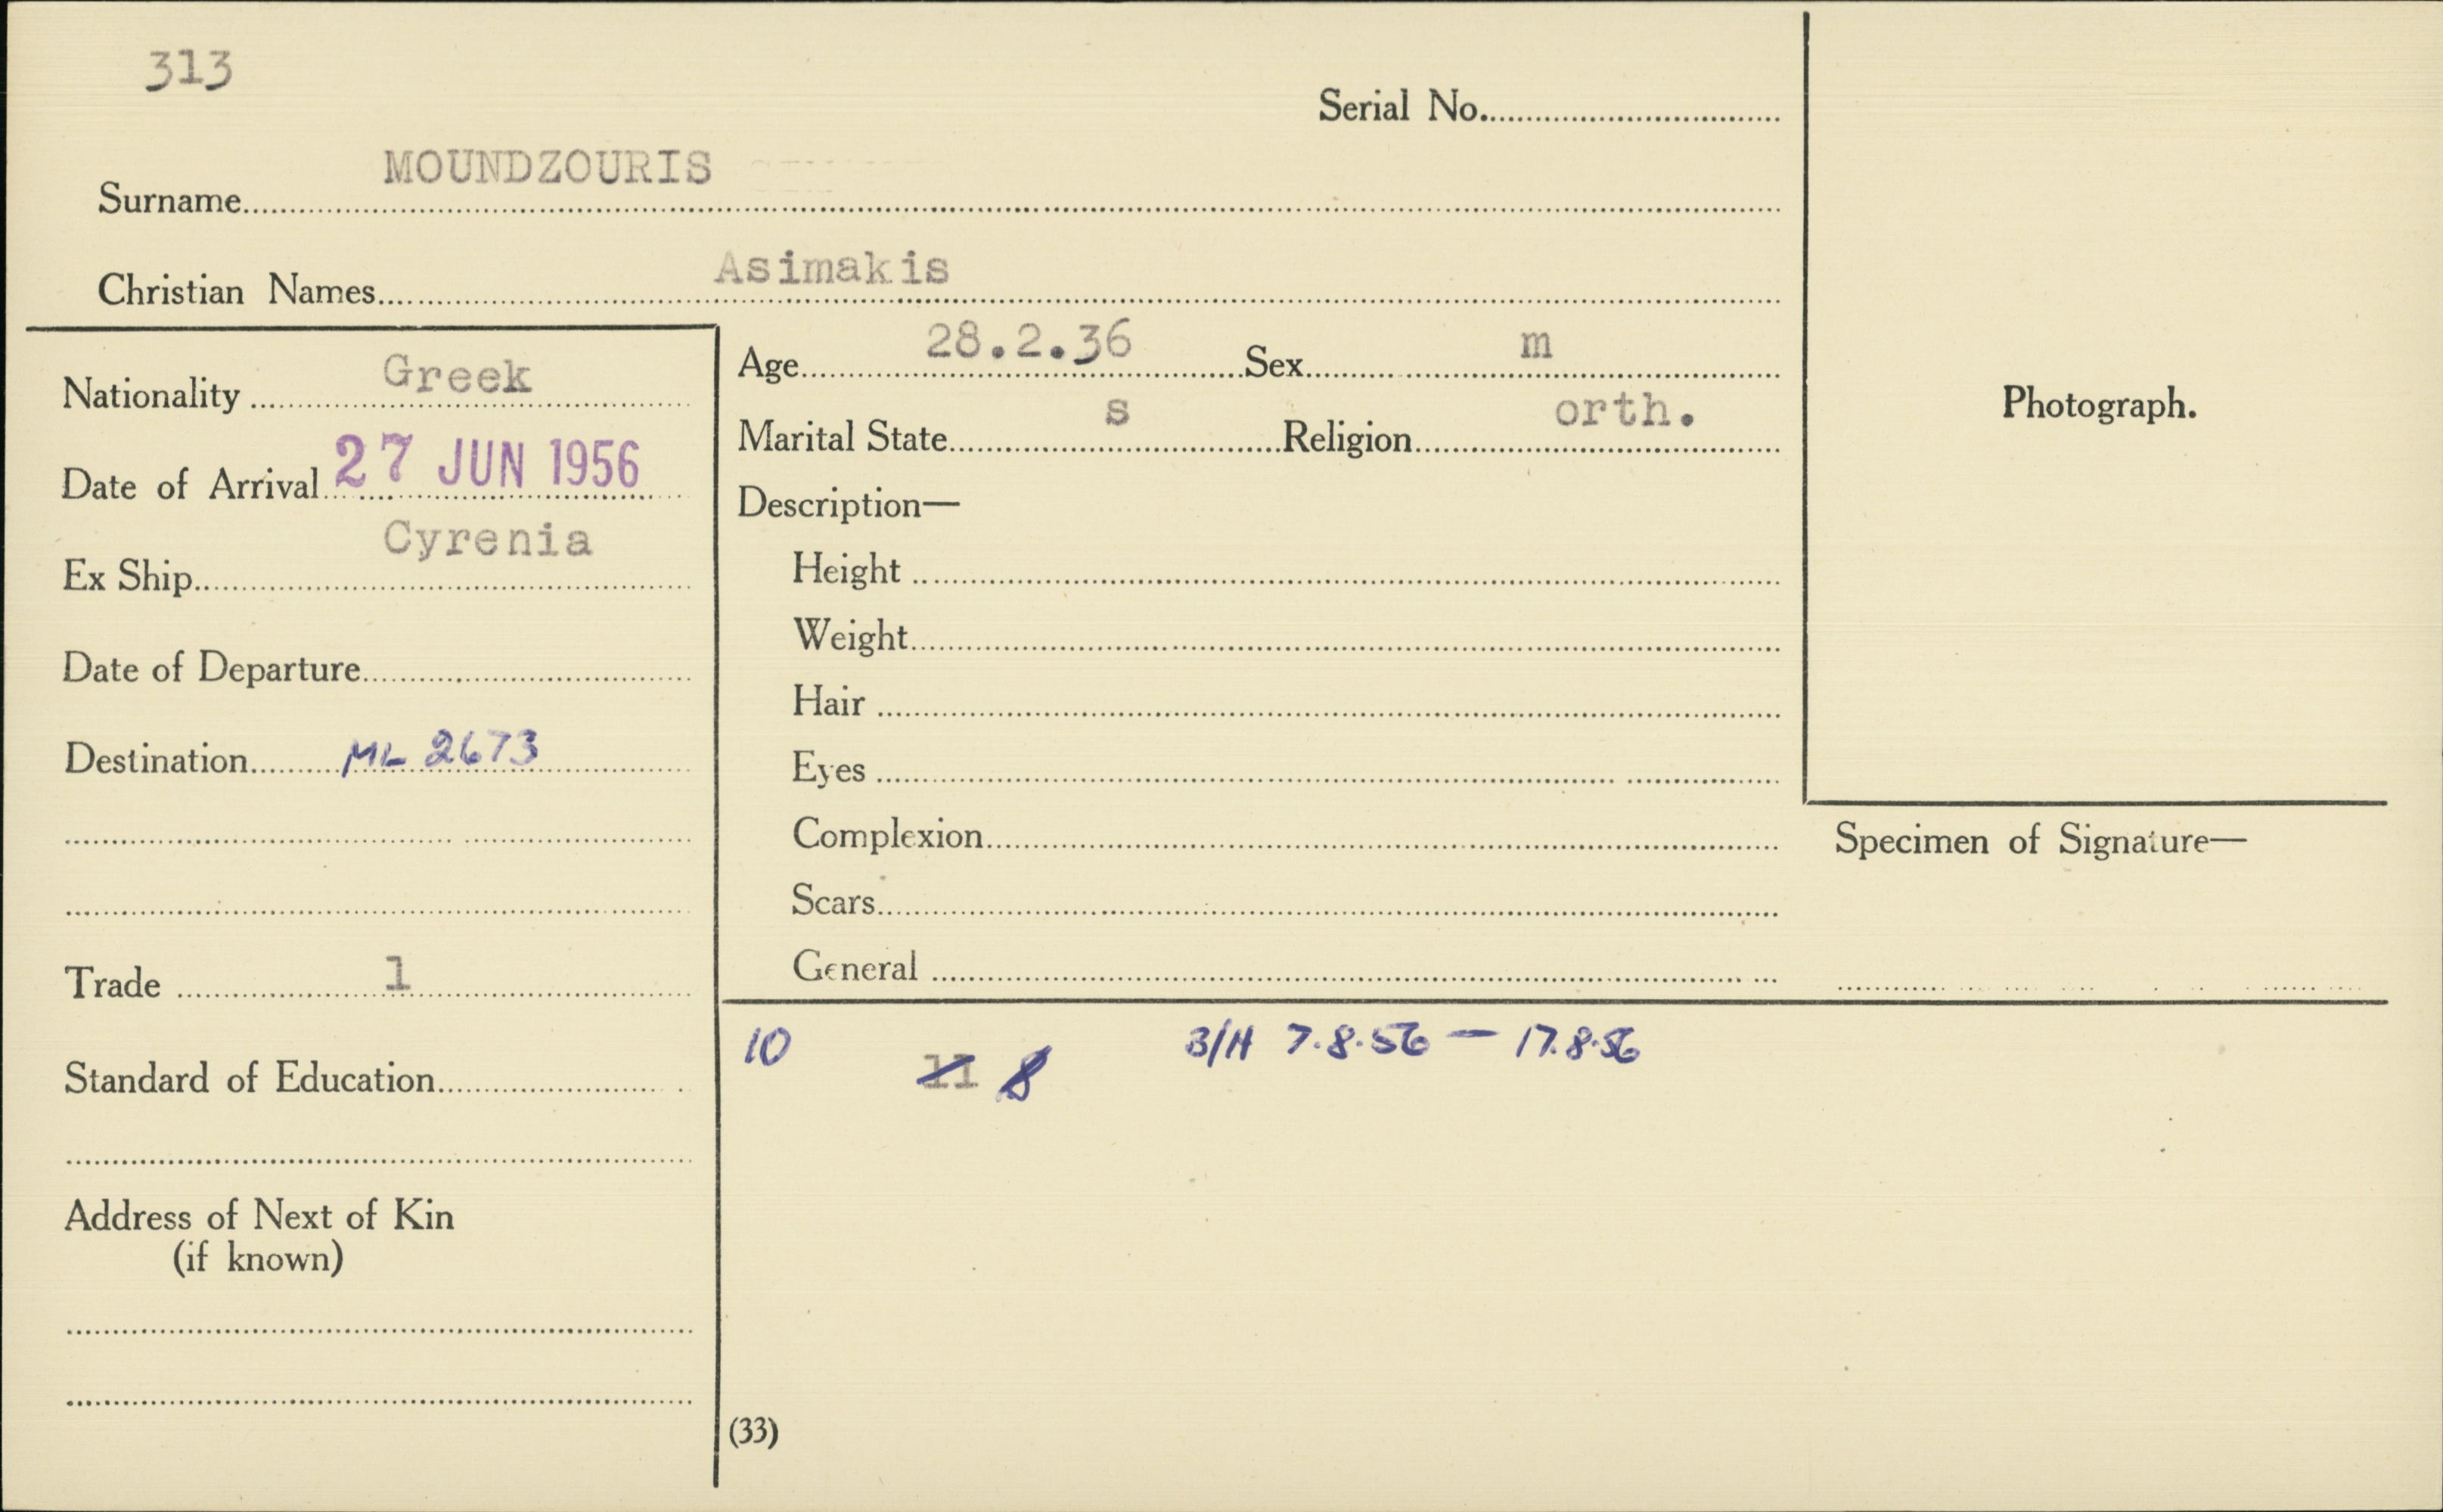 313
Serial No.
MOUNDZOURIS
Surname
Asimakis
Christian Names
28.2.36 m
Age Sex
Greek
Nationality
s orth.
Marital State Religion
27 JUN 1956
Date of Arrival
Description—
Cyrenia
Ex Ship
Height
Weight
Date of Departure
Hair
Destination ML 2673
Eyes
Complexion
Scars
Trade 1
General
Photograph.
Specimen of Signature—
10 11 8 B/H 7.8.56 — 17.8.56
Standard of Education
Address of Next of Kin
(if known)
(33)